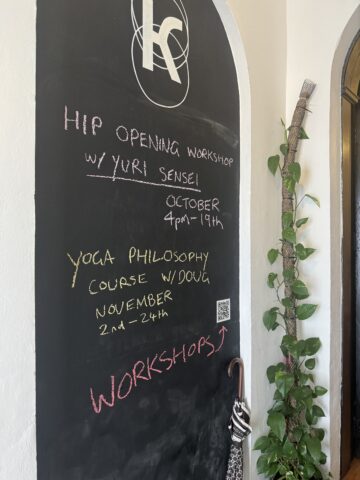 K
HIP OPENING WORKSHOP
W/ YURI SENSEI
OCTOBER
4pm-19th
YOGA PHILOSOPHY
COURSE W/DOUG
NOVEMBER
2nd-24th
WORKSHOPS